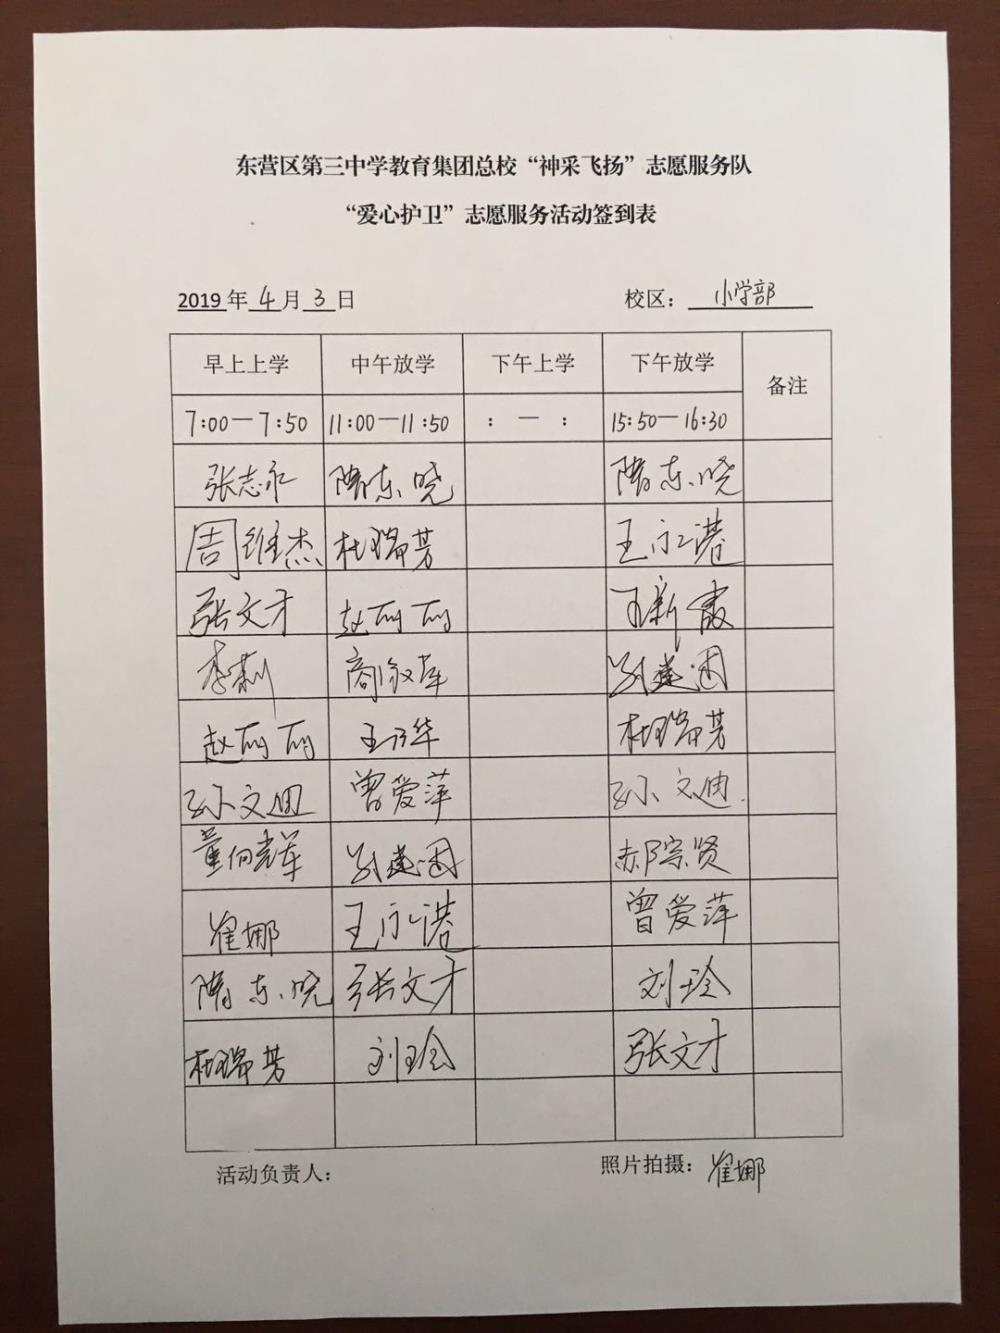 东营区第三中学教育集团总校“神采飞扬”志愿服务队
“爱心护卫”志愿服务活动签到表
2019年4月3日 校区：小学部
早上上学 中午放学 下午上学 下午放学 备注
7:00—7:50 11:00—11:50 : — : 15:50—16:30
张志永 隋东晓 隋东晓
周维杰 杜瑞芳 王永港
张文才 赵丽丽 王新霞
李莉 商敛军
赵丽丽 王乃华 杜瑞芳
孙文迪 曾爱萍 孙文迪
董向辉 郝宗贤
崔娜 王永港 曾爱萍
隋东晓 张文才 刘玲
杜瑞芳 刘玲 张文才
活动负责人： 照片拍摄：崔娜